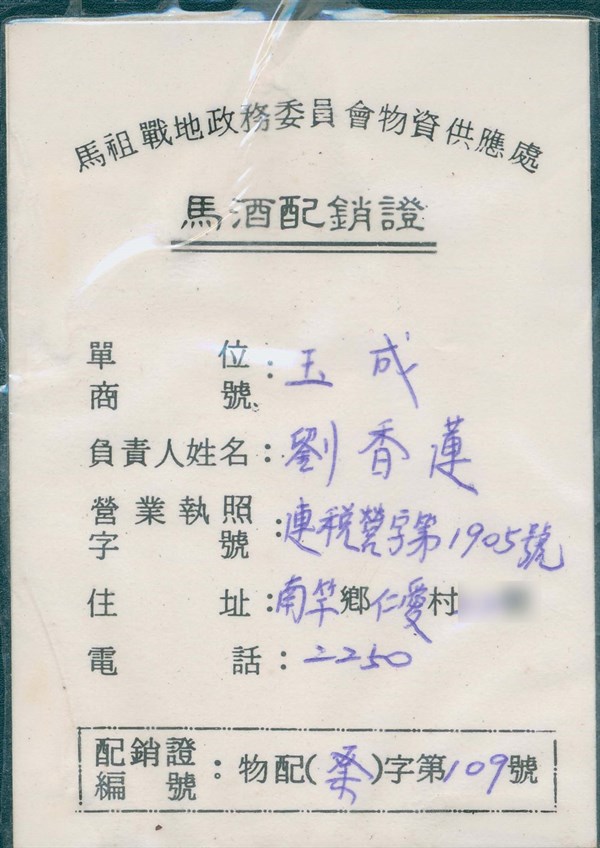 馬祖戰地政務委員會物資供應處
馬酒配銷證
單位
商號：玉成
負責人姓名：劉香蓮
營業執照
字號：連税營字第1905號
住址：南竿鄉仁愛村
電話：2250
配銷證
編號：物配(桑)字第109號